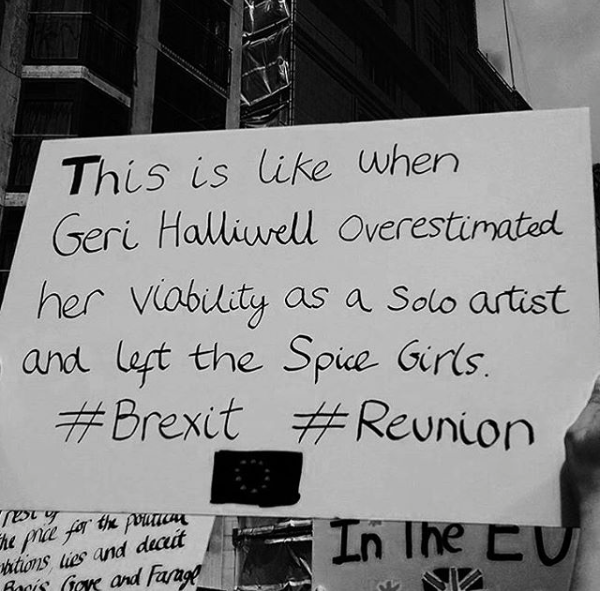 This is like when
Geri Halliwell overestimated
her viability as a solo artist
and left the Spice Girls.
#Brexit #Reunion
the price for the political
lies and deceit
Boris Gove and Farage
In The EU